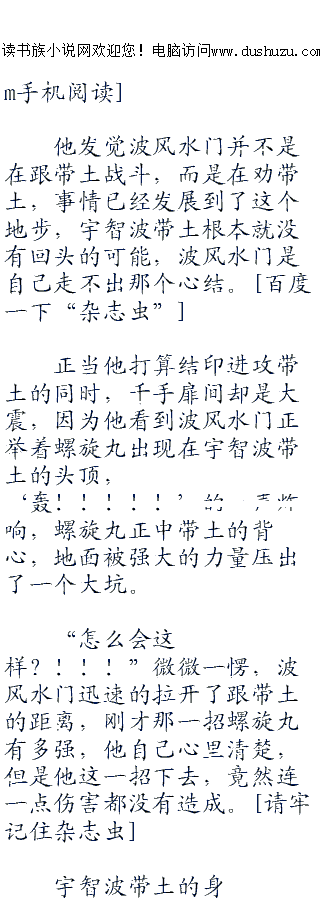 读书族小说网欢迎您！电脑访问www.dushuzu.com
m手机阅读]
他发觉波风水门并不是
在跟带土战斗，而是在劝带
土，事情已经发展到了这个
地步，宇智波带土根本就没
有回头的可能，波风水门是
自己走不出那个心结。[百度
一下“杂志虫”]
正当他打算结印进攻带
土的同时，千手扉间却是大
震，因为他看到波风水门正
举着螺旋丸出现在宇智波带
土的头顶，
‘轰！！！！！’的
响，螺旋丸正中带土的背
心，地面被强大的力量压出
了一个大坑。
“怎么会这
样？！！！”微微一愣，波
风水门迅速的拉开了跟带土
的距离，刚才那一招螺旋丸
有多强，他自己心里清楚，
但是他这一招下去，竟然连
一点伤害都没有造成。[请牢
记住杂志虫]
宇智波带土的身